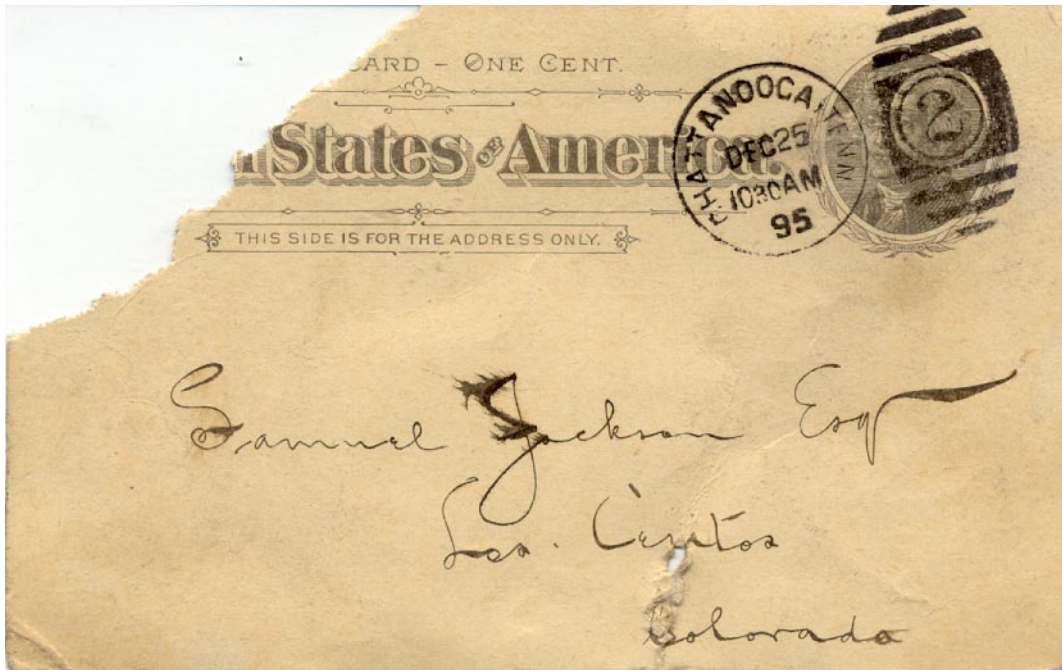 CARD - ONE CENT.
States OF America.
THIS SIDE IS FOR THE ADDRESS ONLY.
CHATTANOOGA, TENN
DEC 25
1030AM
95
2
Samuel Jackson Esq
Los. Cerritos
Colorado